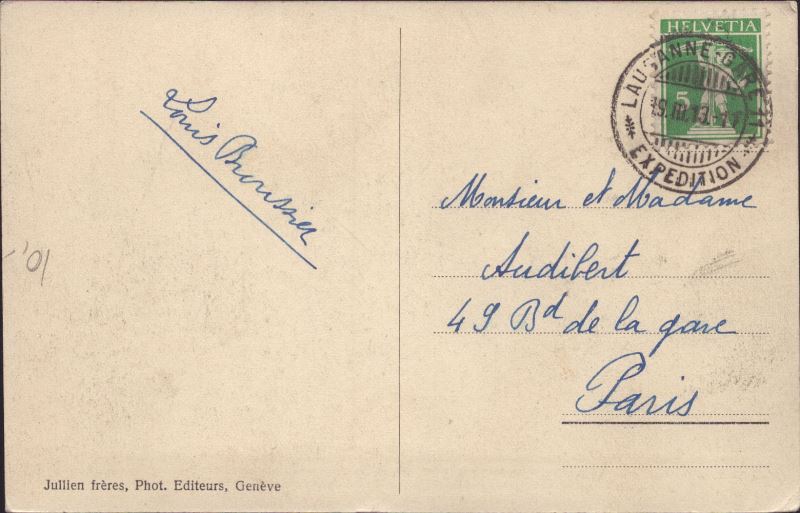 HELVETIA
5
LAUSANNE-GARE
EXPEDITION
Louis Broussier
Monsieur et Madame
Audibert
49 Bd de la gare
Paris
10,-
Jullien frères, Phot. Editeurs, Genève